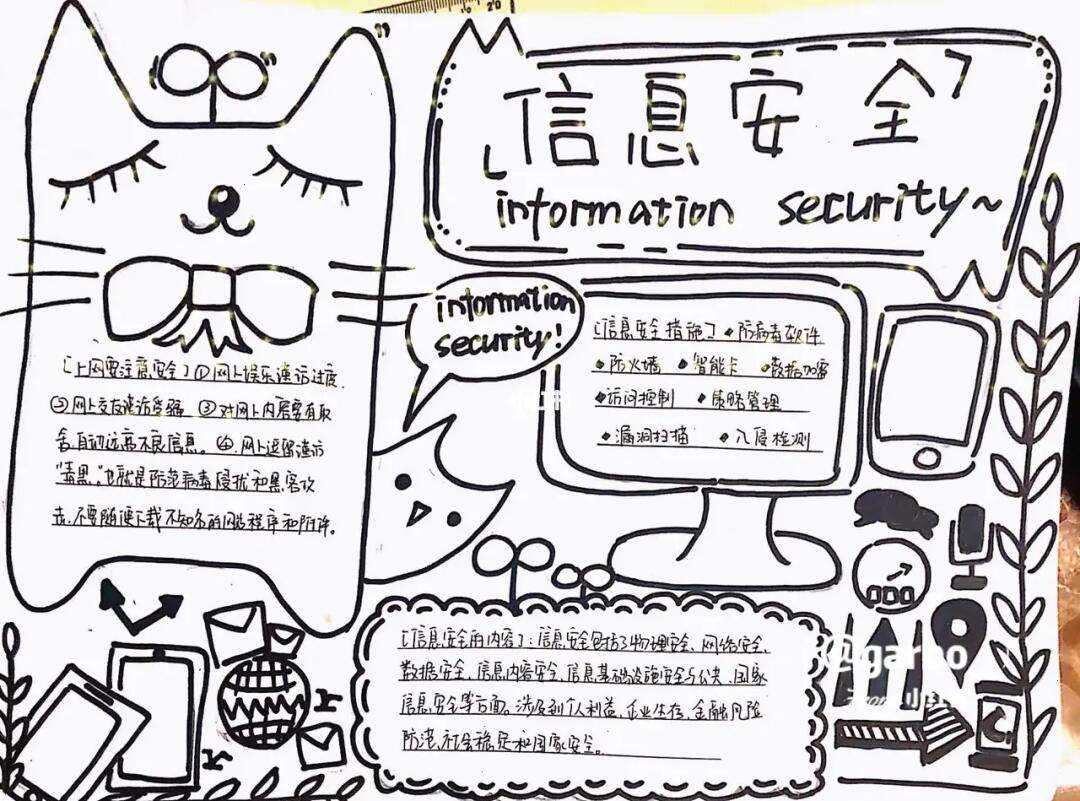 信息安全
information security~
information
security!
[上网要注意安全] ①网上娱乐谨防过度.
②网上交友谨防受骗 ③对网上内容要有取
舍,自动远离不良信息。④网上逗留谨防
"毒黑。"也就是防范病毒侵扰和黑客攻
击,不要随便下载不知名的网站程序和附件。
[信息安全措施] ◆防病毒软件
◆防火墙 ◆智能卡 ◆数据加密
◆访问控制 ◆策略管理
◆漏洞扫描 ◆入侵检测
[信息安全的内容]:信息安全包括了物理安全、网络安全、
数据安全、信息内容安全、信息基础设施安全与公共、国家
信息安全等方面。涉及到个人利益、企业生存、金融风险
防范、社会稳定和国家安全。
小红书